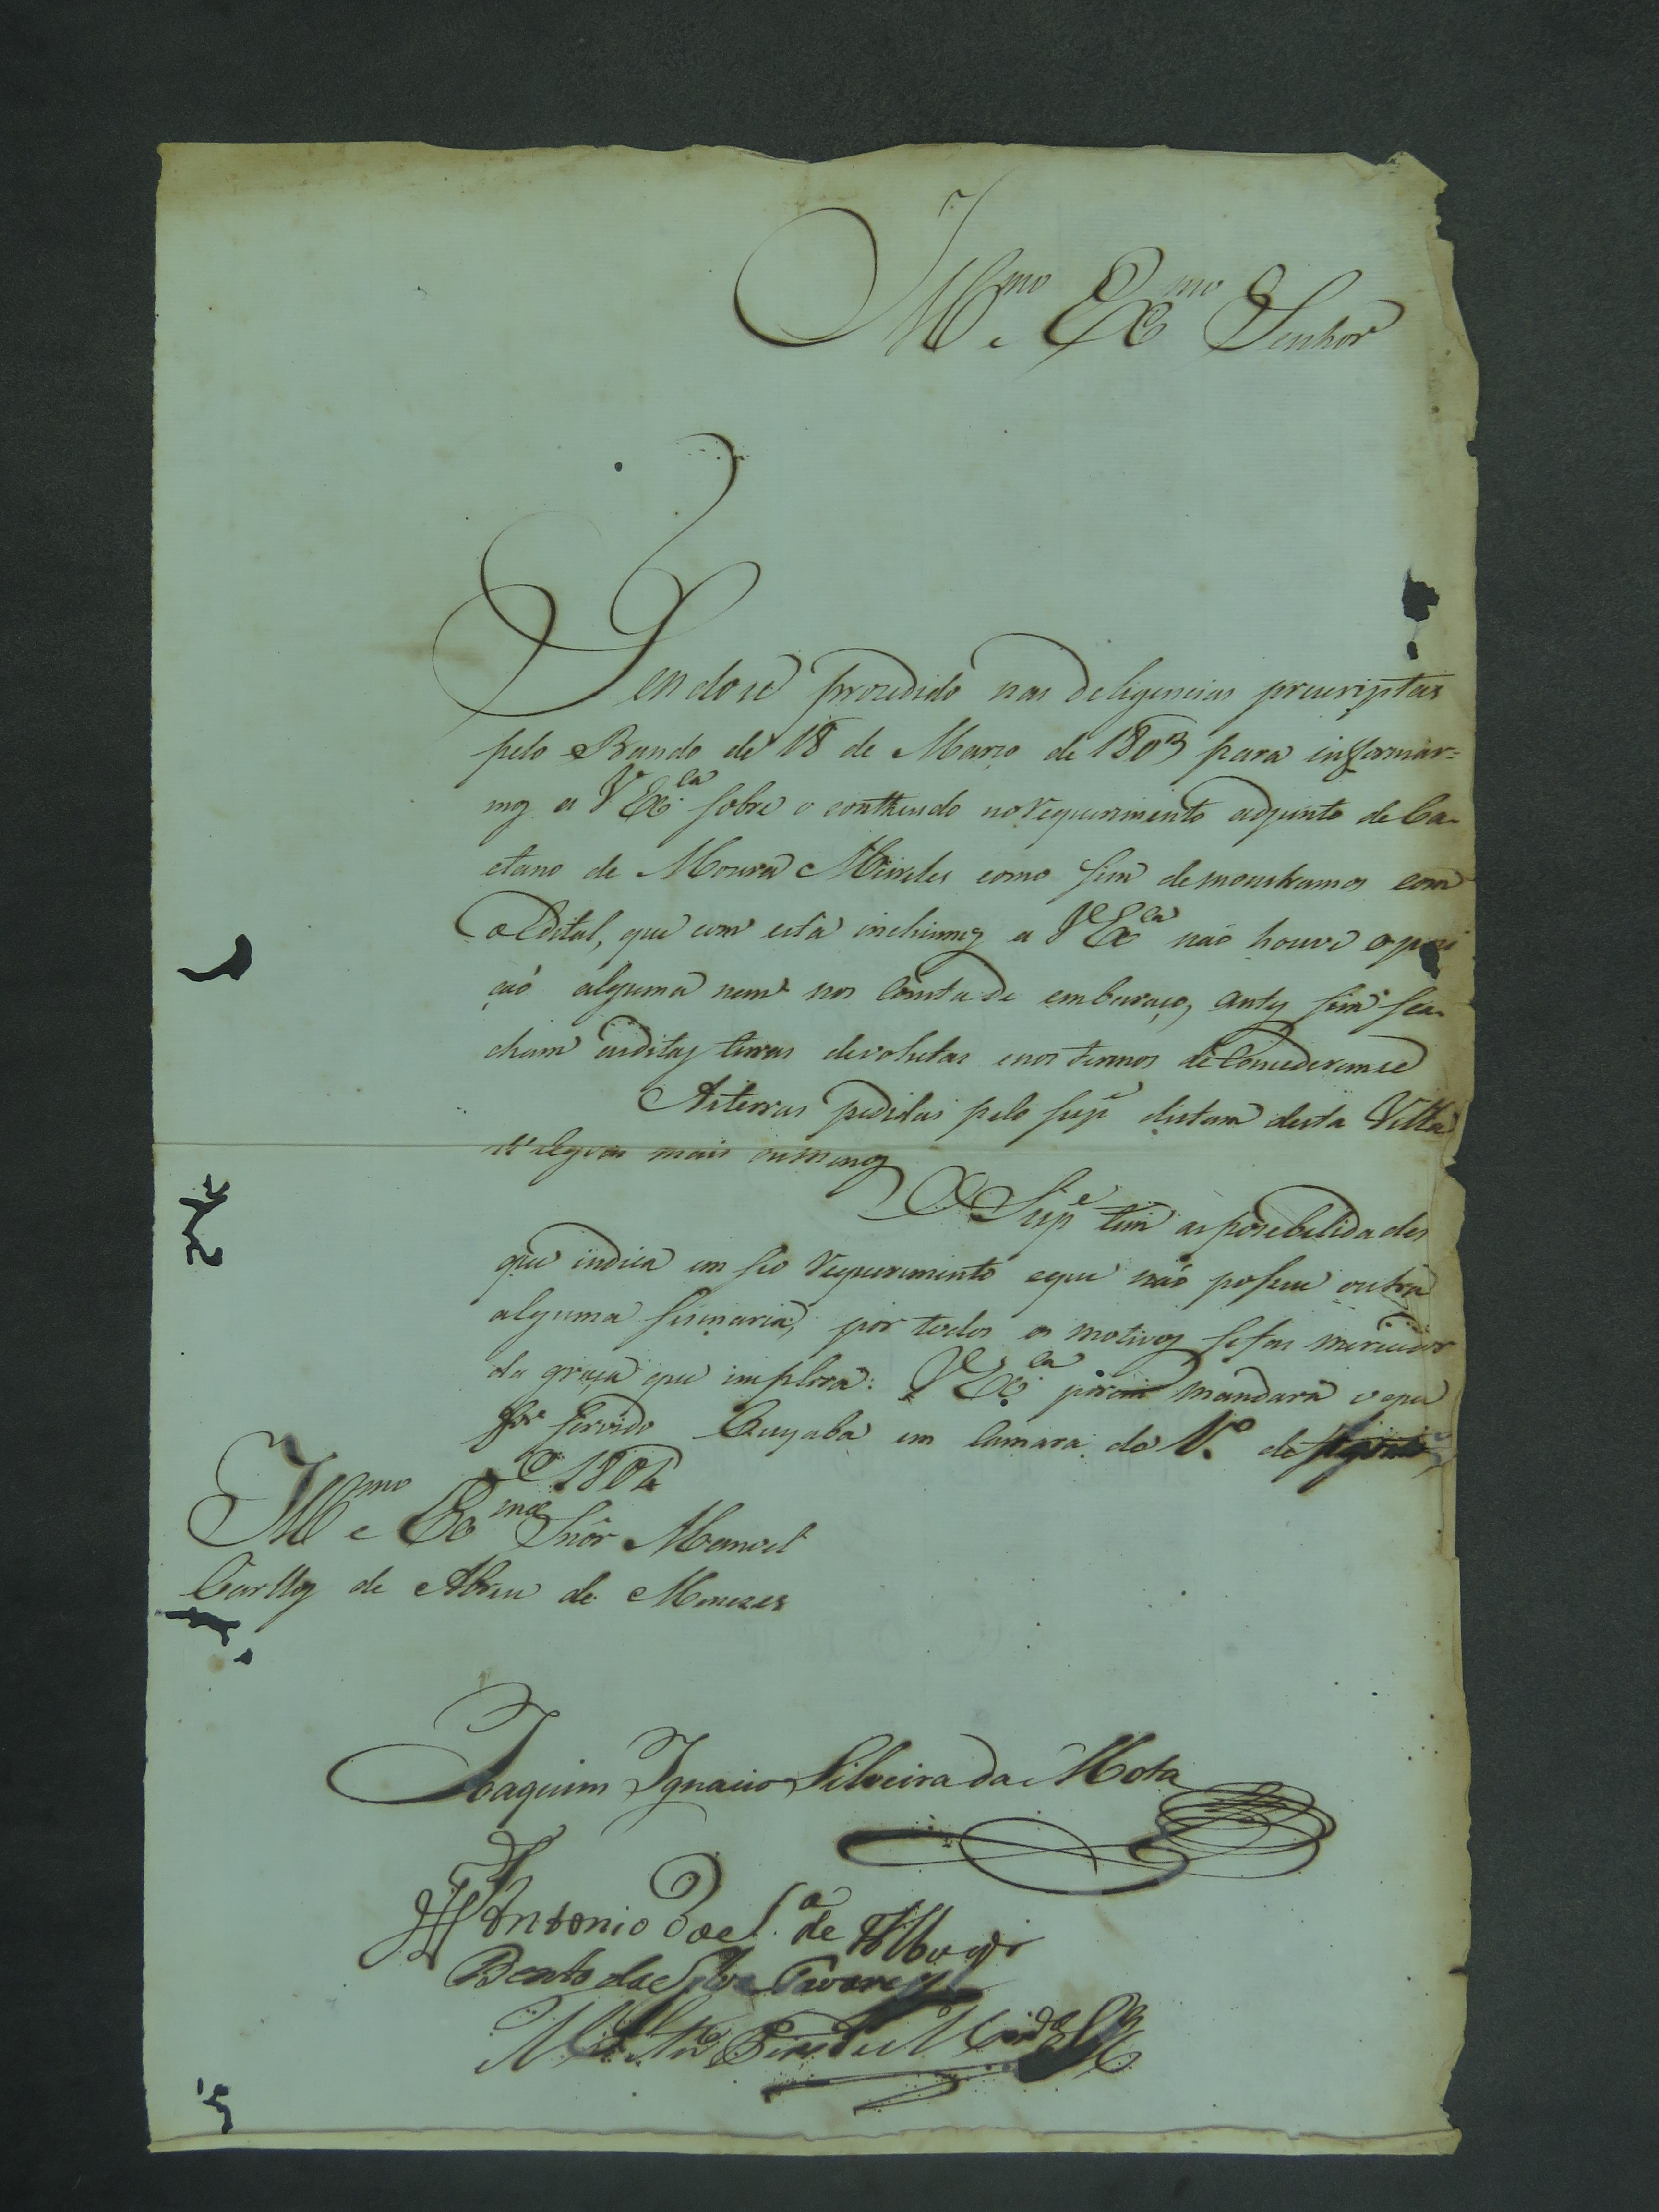 Illmo e Exmo Senhor
Sendose procedido nas deligencias prescriptas
pelo Bando de 18 de Março de 1803 para informar=
mos a VExca sobre o contheudo no requerimento adjunto de Ca-
etano de Moura Meireles como sim demonstramos com
o Edital, que com esta incluimos a VExca não houve opozi
çaó alguma nem nos consta de embaraço, antes sim sea-
cham asditas terras devolutas enos termos de Concederemse
As terras pedidas pelo Supe distam desta Villa
legoas mais oumenos
O Supe tem aspossebilidades
que indica em seo requerimento eque não possue outra
alguma sismaria, por todos os motivos sefas merecedor
da graça que implora: VExca porem mandará o que
for servido Cuyaba em Camara de 1.º de
1804
Illmo e Exmo Snór Manoel
Carllos de Abreu de Menezes
Joaquim Ignacio Silveira da Mota
Antonio de
Bento da Silva Tavares